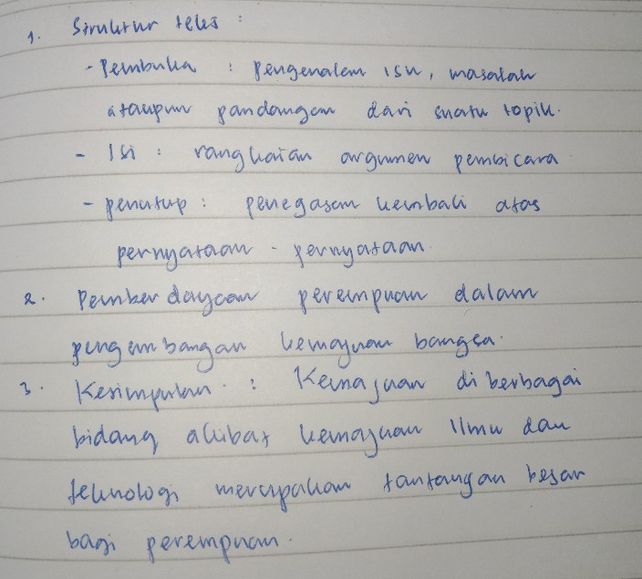 1. Struktur teks :
- Pembuka : pengenalan isu, masalah
ataupun pandangan dari suatu topik.
- Isi : rangkaian argumen pembicara
- penutup : penegasan kembali atas
pernyataan - pernyataan.
2. Pemberdayaan perempuan dalam
pengembangan kemajuan bangsa.
3. Kesimpulan. : Kemajuan di berbagai
bidang akibat kemajuan ilmu dan
teknologi merupakan tantangan besar
bagi perempuan.